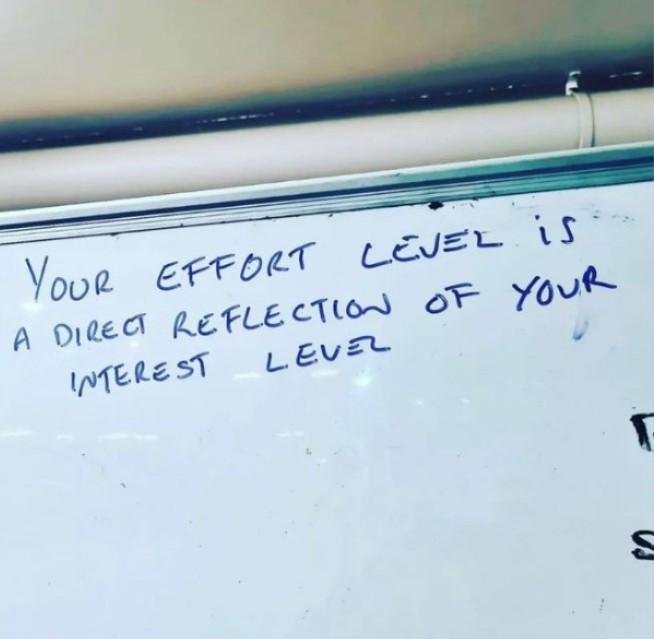 YOUR EFFORT LEVEL iS
A DIRECT REFLECTION OF YOUR
INTEREST LEVEL
S